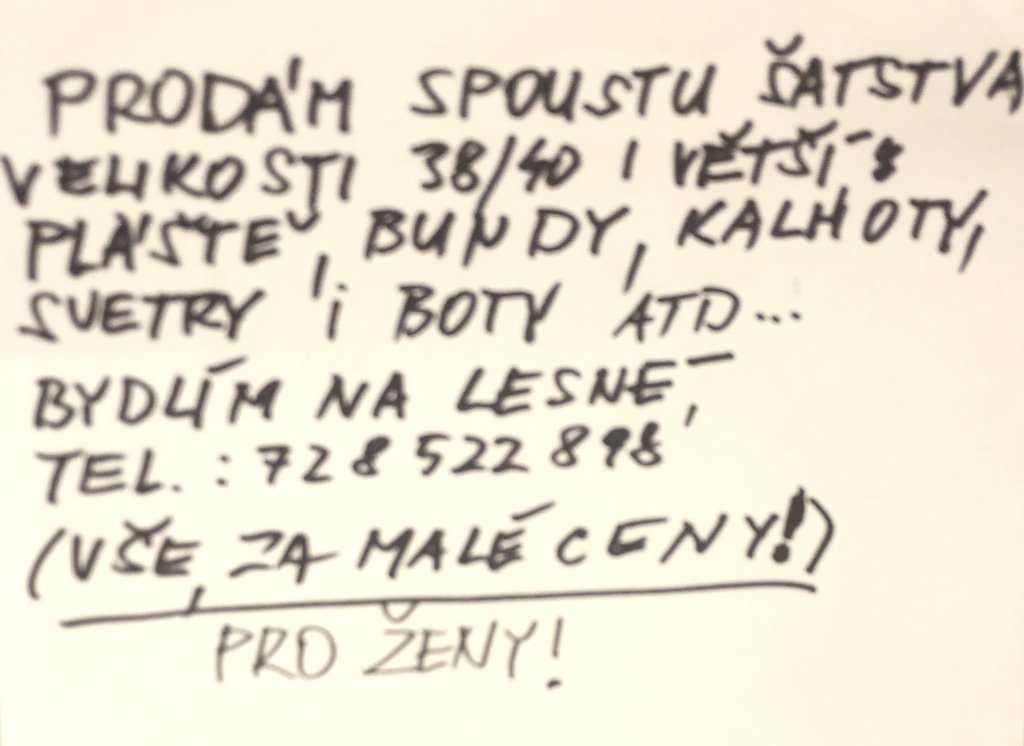 PRODÁM SPOUSTU ŠATSTVA
VELIKOSTI 38/40 I VĚTŠÍ:
PLÁŠTĚ, BUNDY, KALHOTY,
SVETRY i BOTY ATD...
BYDLÍM NA LESNÉ,
TEL.: 728 522 898
(VŠE, ZA MALÉ CENY!)
PRO ŽENY!